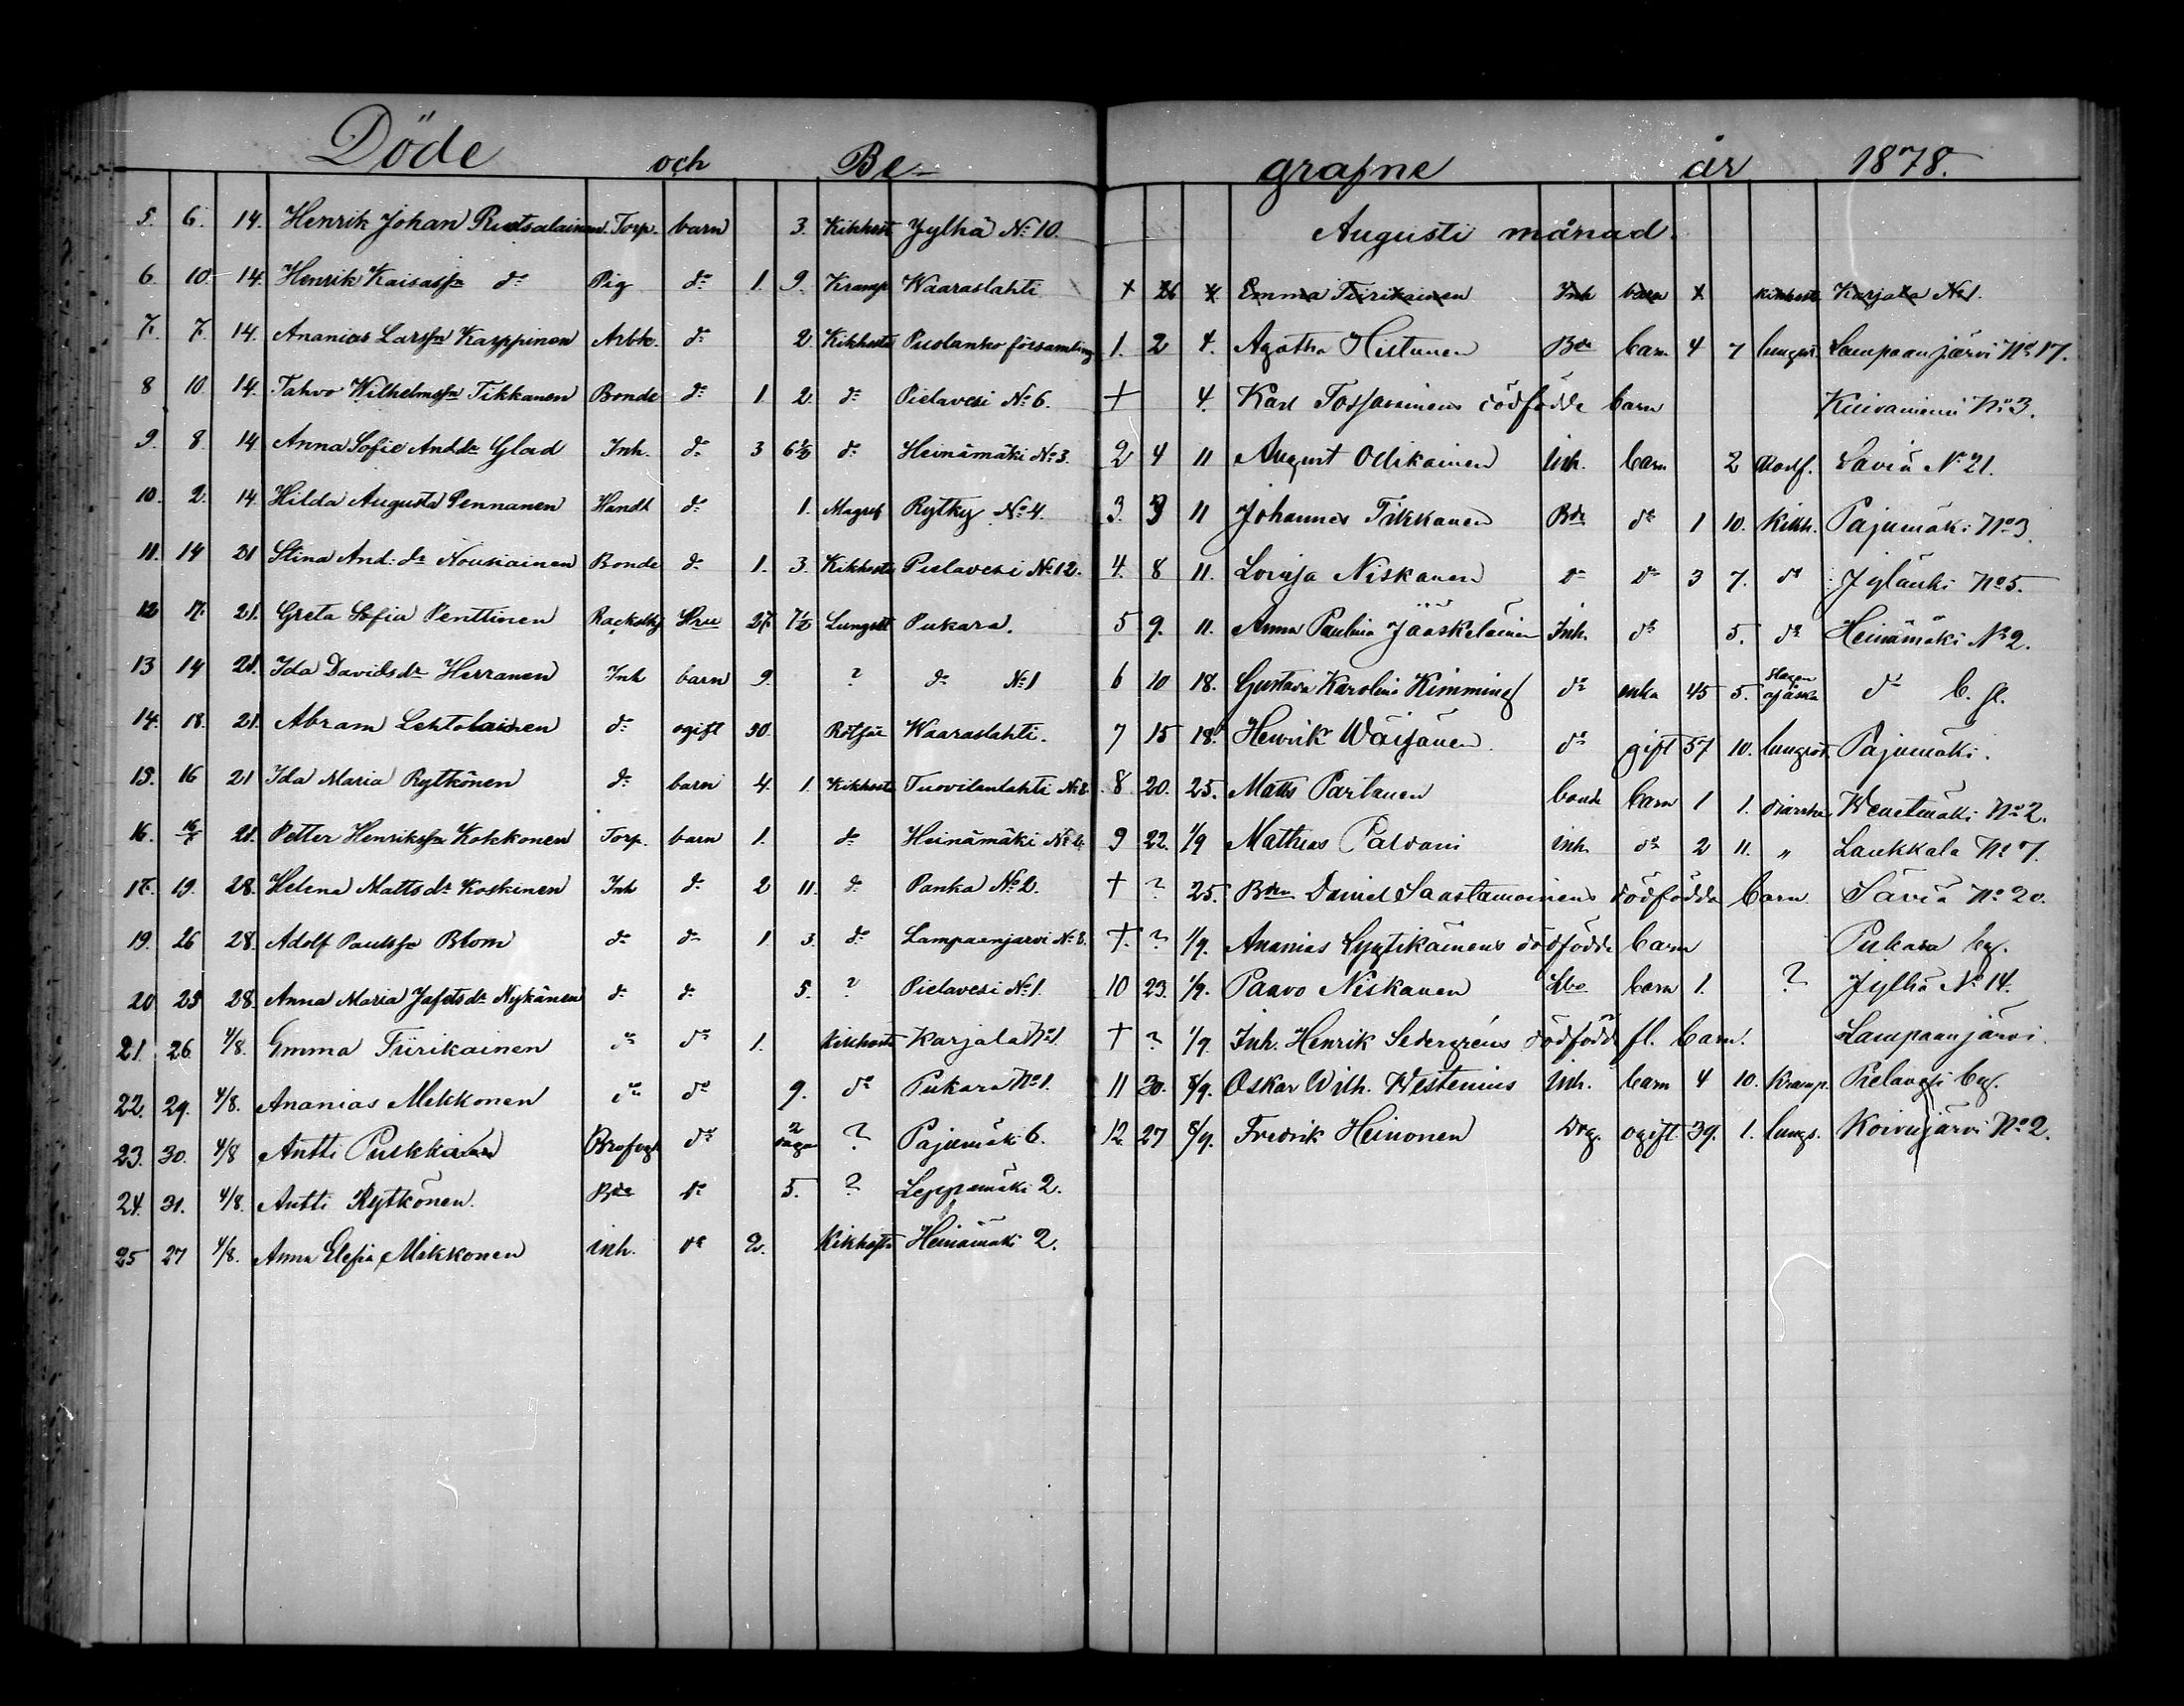 Döde och Be-
5. 6. 14. Henrik Johan Rutsalainen Torp. barn 3. Kikhost Jylhä No 10.
6. 10. 14. Henrik Kaisassn do Pig do 1. 9. Kramp Waaraslahti
7. 7. 14. Ananias Larssn Karppinen Arbk. do 2. Kikhosta Puolanko församling
8 10. 14. Tahvo Wilhelmssn Tikkanen Bonde do 1 2. do Pielavesi No 6.
9. 8. 14 Anna Sofie And.dr Glad Inh. do 3 6½ do Heinämäki No 3.
10. 2. 14. Hilda Augusta Pennanen Handl do 1. Magref Rytky No 4.
11. 14 21 Stina And: dr Nousiainen Bonde do 1. 3. Kikhosta Pielavesi No 12.
12 17. 21. Greta Sofia Penttinen Hru 27. 7½ Lungsot Pukara.
13 14 21. Ida Davidsdr Herranen Inh barn 9. ? do No 1
14. 18. 21. Abram Lehtolainen do ogift 30. Rötfär Waaraslahti.
15. 16 21 Ida Maria Rytkönen do barn 4. 1. Kikhosta Tuovilanlahti No 8.
16. 21. Petter Henrikssn Kokkonen Torp. barn 1. do Heinämäki
17. 19. 28. Helena Mattsdr Koskinen Inh do 2 11. do Panka No 2.
19. 26 28. Adolf Paulssn Blom do do 1 3. do Lampaanjarvi No 8.
20 25 28. Anna Maria Jafetsdr Nykänen do do 5. ? Pielavesi No 1.
21. 26 4/8. Emma Tiirikainen do do 1. Kikhosta Karjala No 1.
22. 29. 4/8. Ananias Mikkonen do do 9. do Pukara No 1.
23. 30. 4/8 Antti Puskkinen do 2 dagar ? Pajumäki 6.
24. 31. 4/8. Antti Rytkönen. Bde do 5. ? Leppämäki 2.
25 27 4/8. Anna Elefia Mikkonen inh. do 2. Kikhosta Heinämäki 2.
grafne år 1878.
Augusti månad.
+ 26 4. Emma Tiirikainen Inh barn 1 Kikhosta Karjala No 1.
1. 2 4. Agatha Hiltunen Bde barn 4 7 lungsot Lampaanjärvi No 17.
+ 4. Karl dödfödde barn Kuivaniemi No 3.
2 4 11 August Ollikainen inh. barn 2 Säviä No 21.
3. 3 11 Johannes Tikkanen Bde do 1 10. Kikh. Pajumäki No 3.
4. 8 11. Lovisa Niskanen do do 3 7. do Jylänki No 5.
5 9. 11. Anna Paulina Jääskeläinen Inh. do 5. do Heinämäki No 2.
6 10 18. Gustava Karolina Kimming do enka 45 5. do b. fl.
7 15 18. Henrik Wäisänen do gift 57 10. lungsot Pajumäki.
8. 20. 25. Matts Partanen bonde barn 1 1. diarrhe Wenetmäki No 2.
9 22. 1/9 Mathias Paldani inh. do 2 11. " Laukkala No 7.
+ ? 25. Bden Daniel Saastamoinens dödfödda barn Säviä No 20.
+ ? 1/9. Ananias Lyytikäinens dödfödde barn Pukara by.
10 23. 1/9. Paavo Niskanen barn 1. ? Jylhä No 14.
+ ? 1/9. Inh. Henrik Sedergréns dödfödd fl. barn. Lampaanjärvi.
11 30. 8/9. Oskar Wilh. Westenius inh. barn 4 10. Kramp. Pielavesi by.
12. 27 8/9. Fredrik Heinonen Drg. ogift 39. 1. lungs. Koivujärvi No 2.